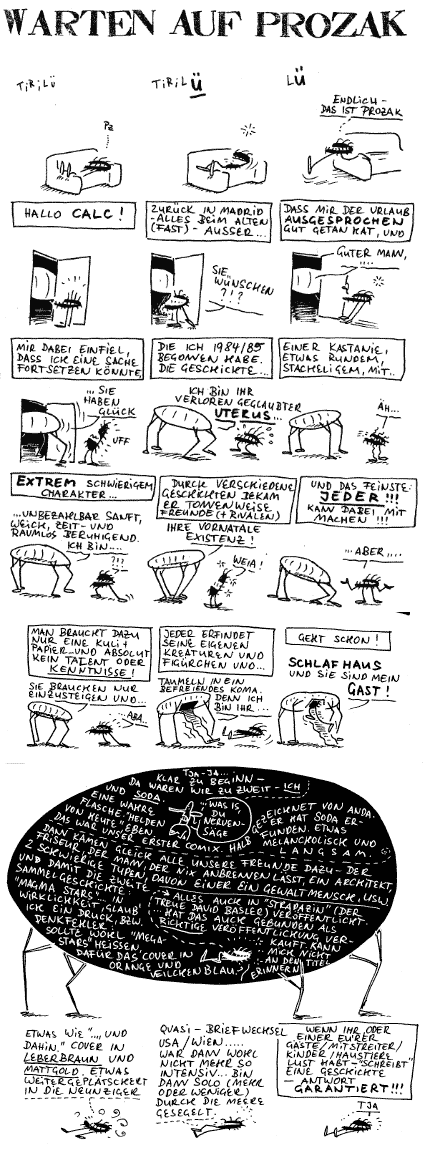 WARTEN AUF PROZAK
TIRILÜ
TIRILÜ
LÜ
ENDLICH -
DAS IST PROZAK
HALLO CALC!
ZURÜCK IN MADRID
- ALLES BEIM ALTEN
(FAST) - AUSSER...
DASS MIR DER URLAUB
AUSGESPROCHEN
GUT GETAN HAT, UND
SIE
WÜNSCHEN
?!?
GUTER MANN,
....
MIR DABEI EINFIEL,
DASS ICH EINE SACHE
FORTSETZEN KÖNNTE,
DIE ICH 1984/85
BEGONNEN HABE.
DIE GESCHICHTE...
EINER KASTANIE,
ETWAS RUNDEM,
STACHELIGEM, MIT..
... SIE
HABEN
GLÜCK
UFF
ICH BIN IHR
VERLOREN GEGLAUBTER
UTERUS...
ÄH...
EXTREM SCHWIERIGEM
CHARAKTER...
DURCH VERSCHIEDENE
GESCHICHTEN BEKAM
ER TONNENWEISE
FREUNDE (+ RIVALEN)
UND DAS FEINSTE:
JEDER!!!
KANN DABEI MIT
MACHEN!!!
...UNBEZAHLBAR SANFT,
WEICH, ZEIT- UND
RAUMLOS BERUHIGEND.
ICH BIN....
?!!
IHRE VORNATALE
EXISTENZ!
WEIA!
...ABER....
MAN BRAUCHT DAZU
NUR EINE KULI +
PAPIER - UND ABSOLUT
KEIN TALENT ODER
KENNTNISSE!
JEDER ERFINDET
SEINE EIGENEN
KREATUREN UND
FIGÜRCHEN UND...
GEHT SCHON!
SIE BRAUCHEN NUR
EINZUSTEIGEN UND...
ABA..
TAUMELN IN EIN
BEFREIENDES KOMA.
DENN ICH
BIN IHR...
SCHLAFHAUS
UND SIE SIND MEIN
GAST!
TJA-JA...
KLAR ZU BEGINN -
DA WAREN WIR ZU ZWEIT - ICH
UND SODA.
EINE WAHRE
FLASCHE. HELDEN
VON HEUTE" EBEN
DAS WAR UNSER ERSTER COMIX. HALB
"WAS IS
DU
NERVEN-
SÄGE
GEZEICHNET VON ANDA.
ER HAT SODA ER-
FUNDEN. ETWAS
MELANCHOLISCH UND
LANGSAM.
DANN KAMEN GLEICH ALLE UNSERE FREUNDE DAZU - DER
FRISEUR, DER MANN, DER NIX ANBRENNEN LÄSST, EIN ARCHITEKT,
2 SCHWIERIGE TYPEN, DAVON EINER EIN GEWALTMENSCH, USW.
UND DAMIT DIE ZWEITE
SAMMELGESCHICHTE:
"MAGMA STARS". IN
WIRKLICHKEIT, GLAUB'
ICH EIN DRUCK, BZW.
DENKFEHLER.
SOLLTE WOHL "MEGA-
STARS" HEISSEN.
DAFÜR DAS COVER IN
ORANGE UND
VEILCHENBLAU.
ALLES AUCH IN "STRAPAZIN" (DER
TREUE DAVID BASLER) VERÖFFENTLICHT.
HAT DAS AUCH GEBUNDEN ALS
RICHTIGE VERÖFFENTLICHUNG VER-
KAUFT. KANN
MICH NICHT
AN DEN TITEL
ERINNERN
ETWAS WIE "...UND
DAHIN" COVER IN
LEBERBRAUN UND
MATTGOLD. ETWAS
WEITERGEPLÄTSCHERT
IN DIE NEUNZIGER
QUASI-BRIEFWECHSEL
USA/WIEN.....
WAR DANN WOHL
NICHT MEHR SO
INTENSIV... BIN
DANN SOLO (MEHR
ODER WENIGER)
DURCH DIE MEERE
GESEGELT.
WENN IHR ODER
EINER EURER
GÄSTE/MITSTREITER/
KINDER/HAUSTIERE
LUST HABT - "SCHREIBT"
EINE GESCHICHTE
- ANTWORT
GARANTIERT!!!
TJA